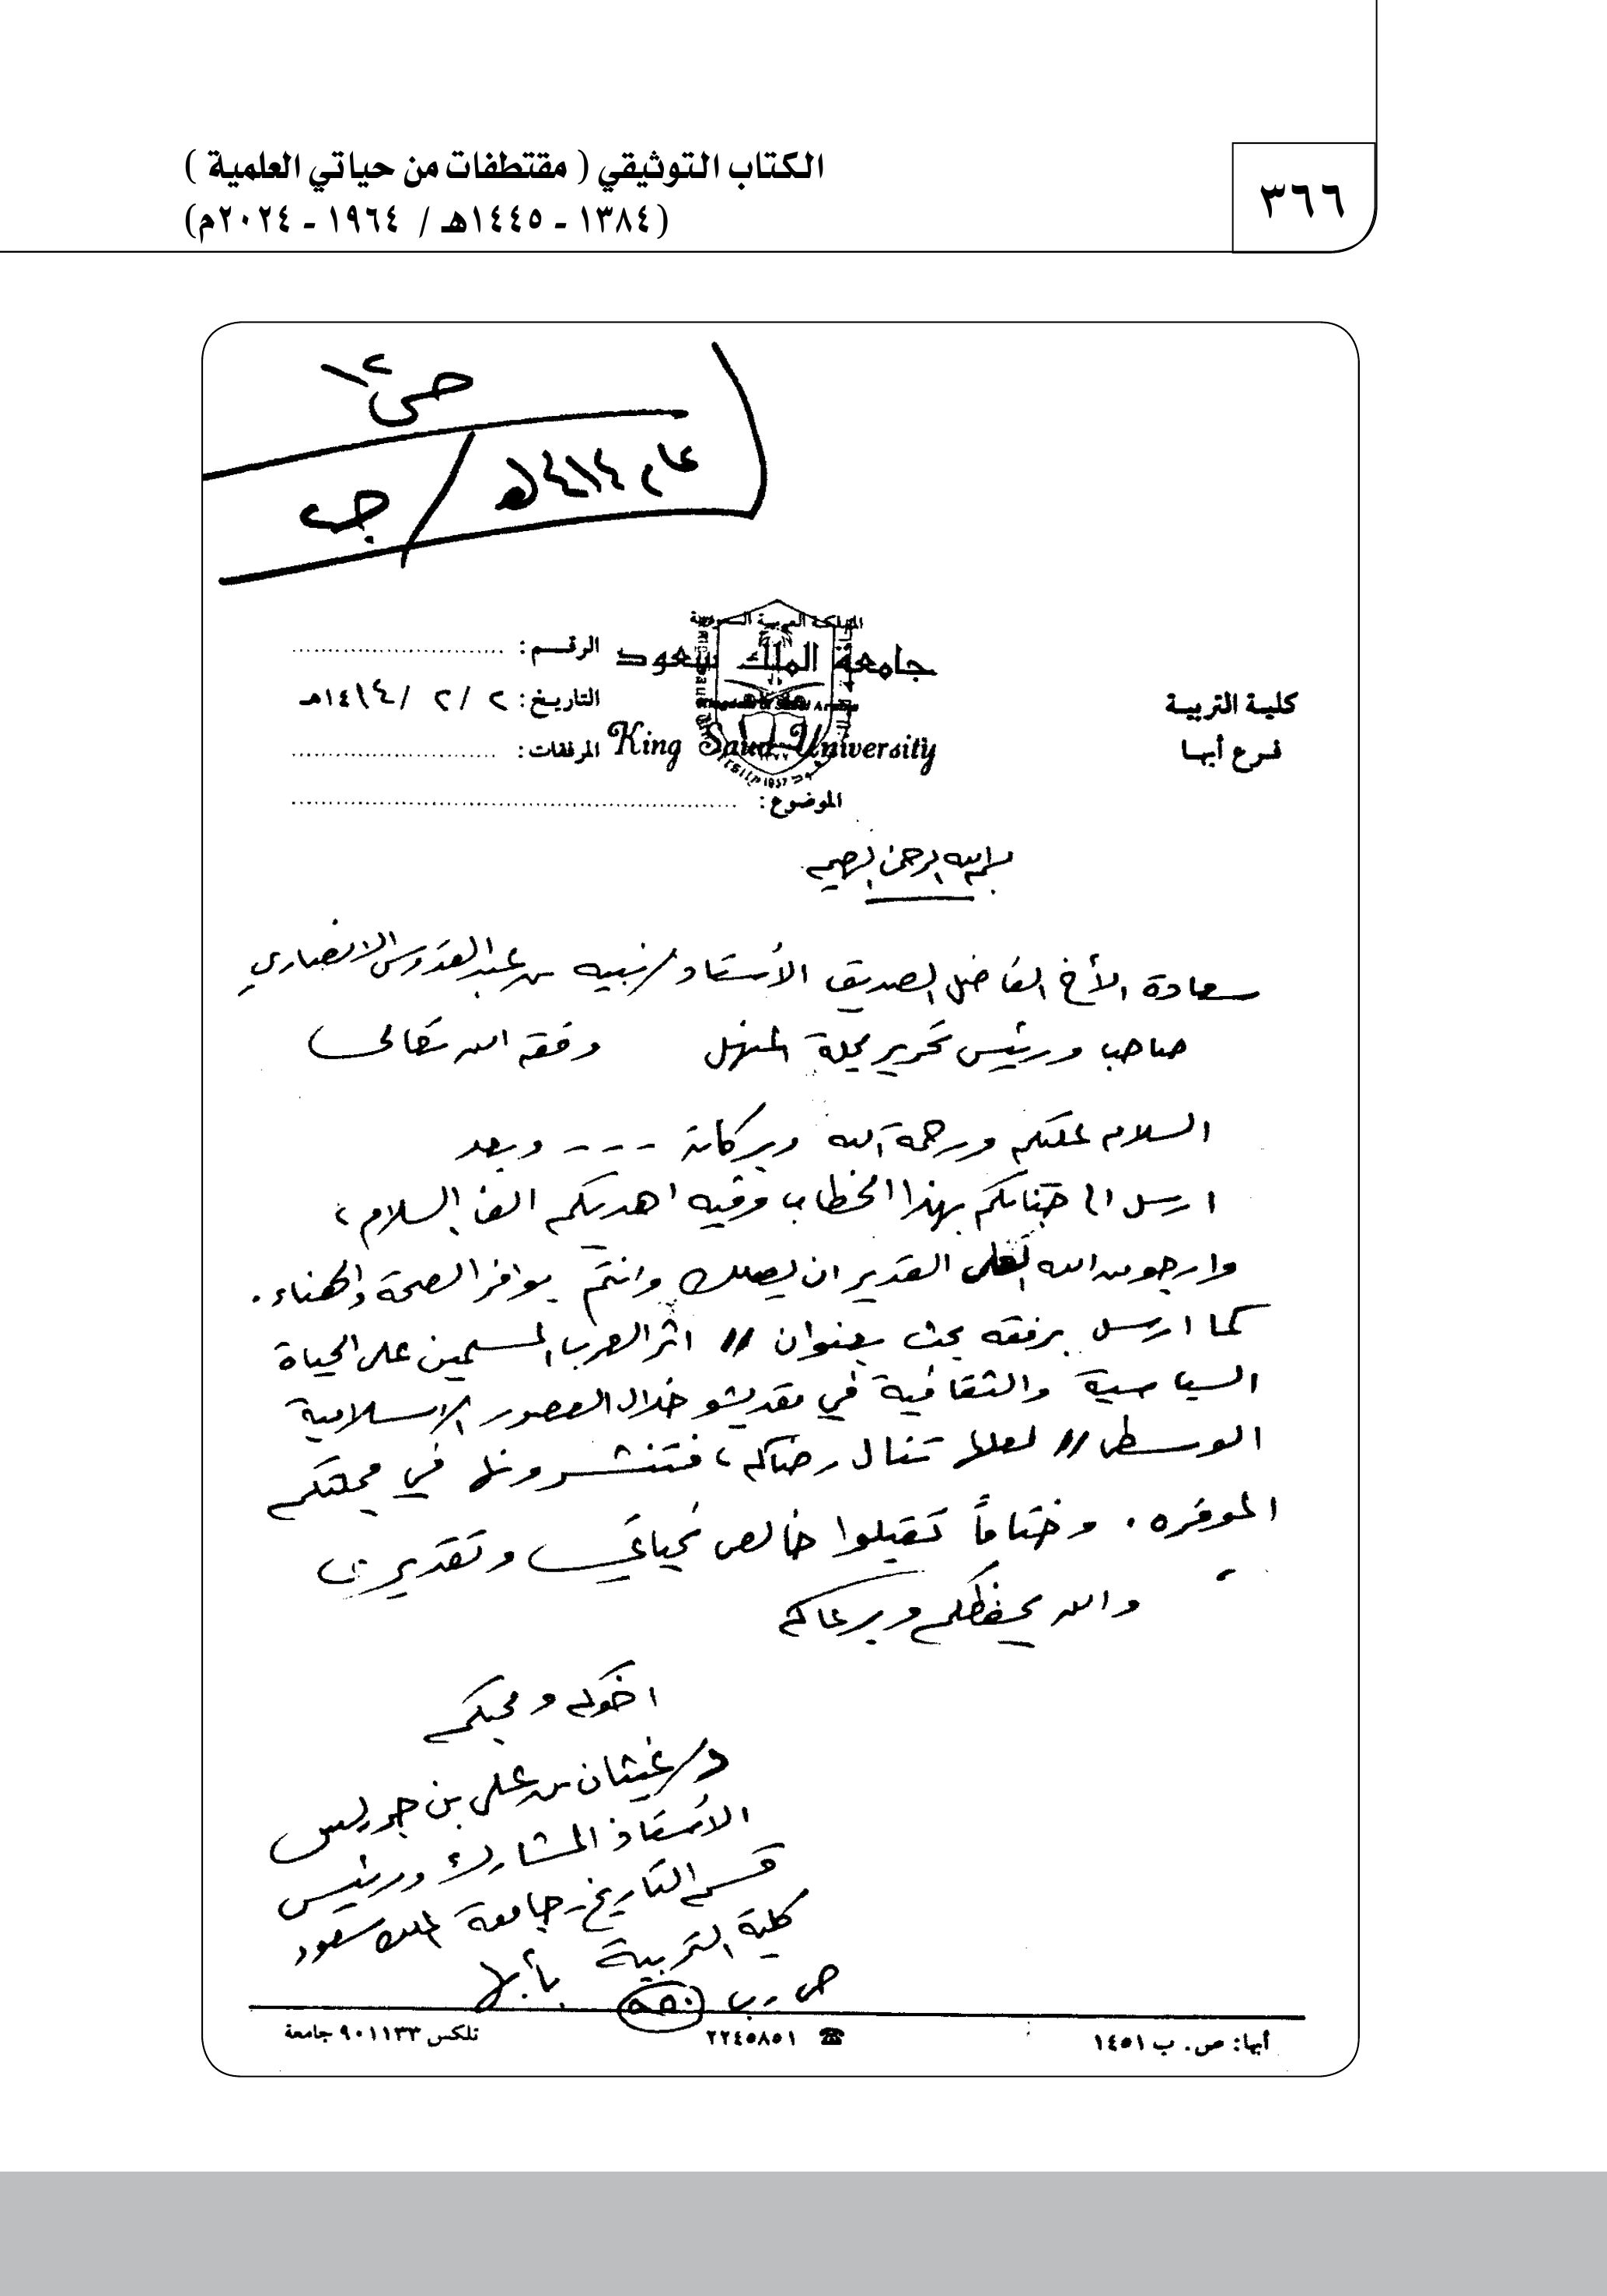 ٣٦٦
الكتاب التوثيقي ( مقتطفات من حياتي العلمية )
(١٣٨٤ - ١٤٤٥هـ / ١٩٦٤ - ٢٠٢٤م)
عام ١٤١٤هـ / جـ
المملكة العربية السعودية
جامعة الملك سعود
King Saud University
كلية التربية
فرع أبها
الرقم :
التاريخ : ٢ / ٢ / ١٤١٤هـ
المرفقات :
الموضوع :
بسم الله الرحمن الرحيم
سعادة الأخ الفاضل الصديق الأستاذ / نبيه بن عبدالقدوس الانصاري
صاحب ورئيس تحرير مجلة المنهل وفقه الله تعالى
السلام عليكم ورحمة الله وبركاته - - - وبعد
ارسل الى جنابكم بهذا الخطاب وفيه اهديكم الف السلام ،
وارجو من الله العلى القدير ان يصلك وانتم بوافر الصحة والهناء .
كما ارسل برفقه بحث بعنوان // اثر العرب المسلمين على الحياة
السياسية والثقافية في مقديشو خلال العصور الاسلامية
الوسطى // لعلها تنال رضاكم ، فتنشرونها في مجلتكم
الموقره . وختاماً تقبلوا خالص تحياتي وتقديري
والله يحفظكم ويرعاكم
اخوكم ومحبكم
د / غيثان بن على بن جريس
الأستاذ المشارك ورئيس
قسم التاريخ - جامعة الملك سعود
كلية التربية بأبها
ص . ب
أبها: ص. ب ١٤٥١
☎ ٢٢٤٥٨٥١
تلكس ٩٠١١٣٣ جامعة